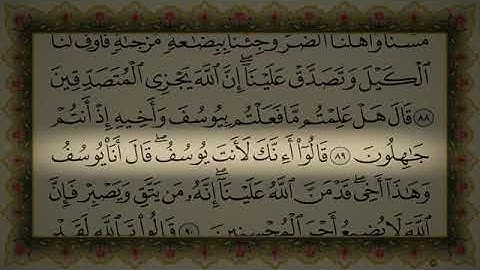 مَسَّنَا وَأَهْلَنَا ٱلضُّرُّ وَجِئْنَا بِبِضَٰعَةٍ مُّزْجَىٰةٍ فَأَوْفِ لَنَا
ٱلْكَيْلَ وَتَصَدَّقْ عَلَيْنَآ ۖ إِنَّ ٱللَّهَ يَجْزِى ٱلْمُتَصَدِّقِينَ
٨٨ قَالَ هَلْ عَلِمْتُم مَّا فَعَلْتُم بِيُوسُفَ وَأَخِيهِ إِذْ أَنتُمْ
جَٰهِلُونَ ٨٩ قَالُوٓا۟ أَءِنَّكَ لَأَنتَ يُوسُفُ ۖ قَالَ أَنَا۠ يُوسُفُ
وَهَٰذَآ أَخِى ۖ قَدْ مَنَّ ٱللَّهُ عَلَيْنَآ ۖ إِنَّهُۥ مَن يَتَّقِ وَيَصْبِرْ فَإِنَّ
ٱللَّهَ لَا يُضِيعُ أَجْرَ ٱلْمُحْسِنِينَ ٩٠ قَالُوا۟ تَٱللَّهِ لَقَدْ